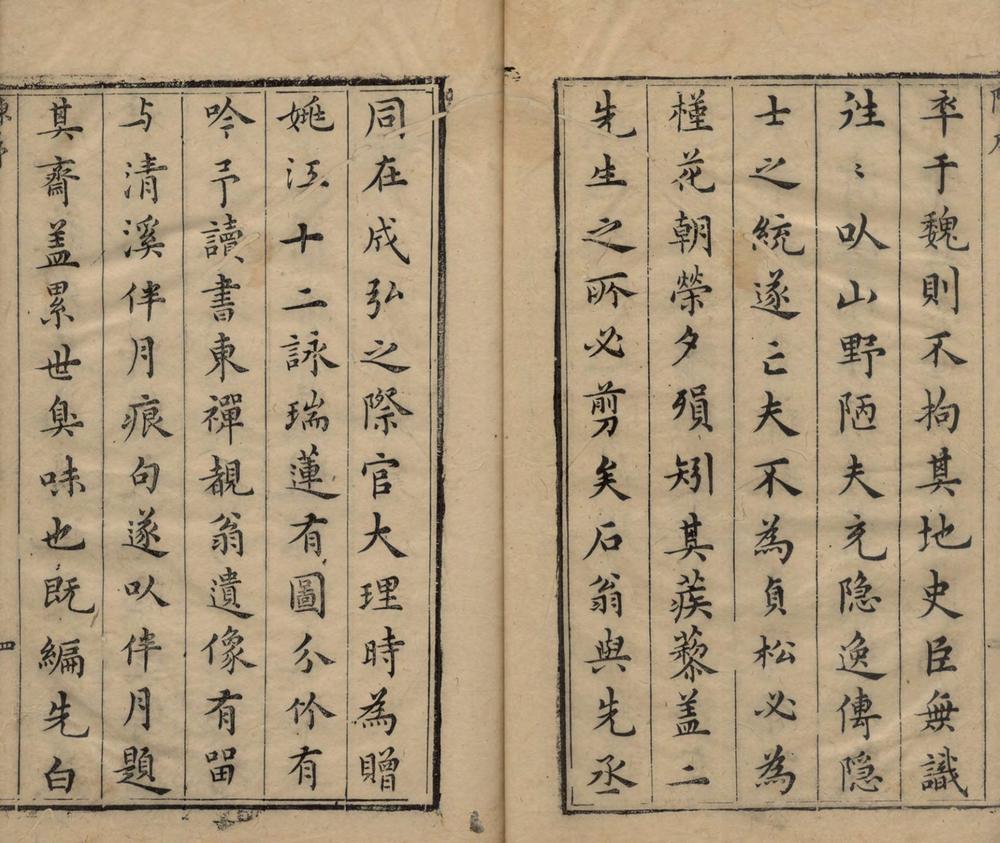 卒于魏則不拘其地史臣無識
徃〻㕥山野陋夫充隐逸傳隠
士之統遂亡夫不為貞松必為
槿花朝榮夕殞矧其蒺藜盖二
先生之所必剪矣石翁與先丞
同在成弘之際官大理時為贈
姚江十二詠瑞蓮有圖分竹有
吟予讀書東禪覩翁遺像有留
与清溪伴月痕句遂㕥伴月題
其齋盖累世臭味也既編先白
四